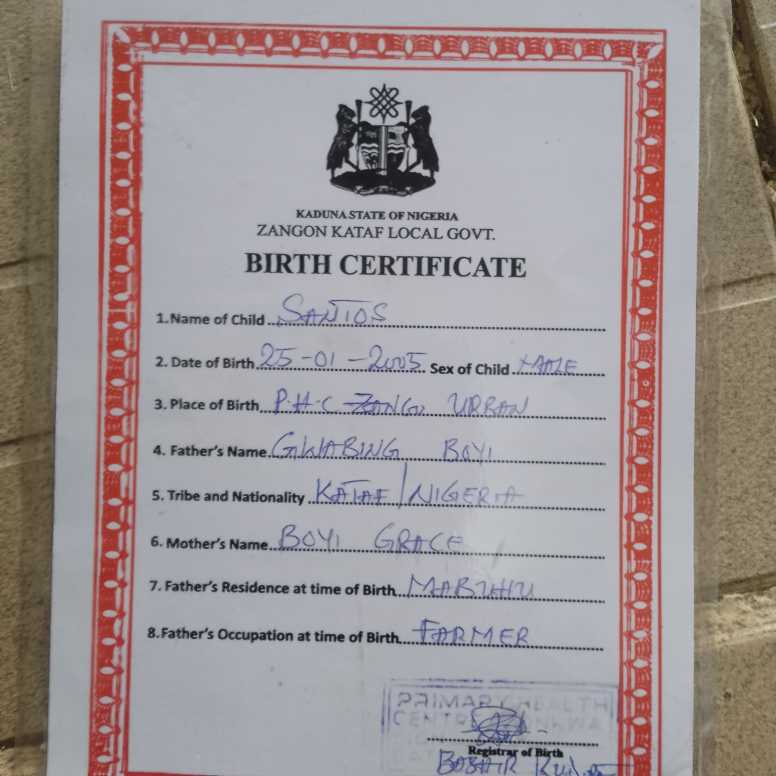 KADUNA STATE OF NIGERIA
ZANGON KATAF LOCAL GOVT.
BIRTH CERTIFICATE
1. Name of Child SANTOS
2. Date of Birth 25-01-2005 Sex of Child MALE
3. Place of Birth P.H.C ZANGO URBAN
4. Father's Name GWABING BOYI
5. Tribe and Nationality KATAF/NIGERIA
6. Mother's Name BOYI GRACE
7. Father's Residence at time of Birth
8. Father's Occupation at time of Birth FARMER
PRIMARY HEALTH
Registrar of Birth